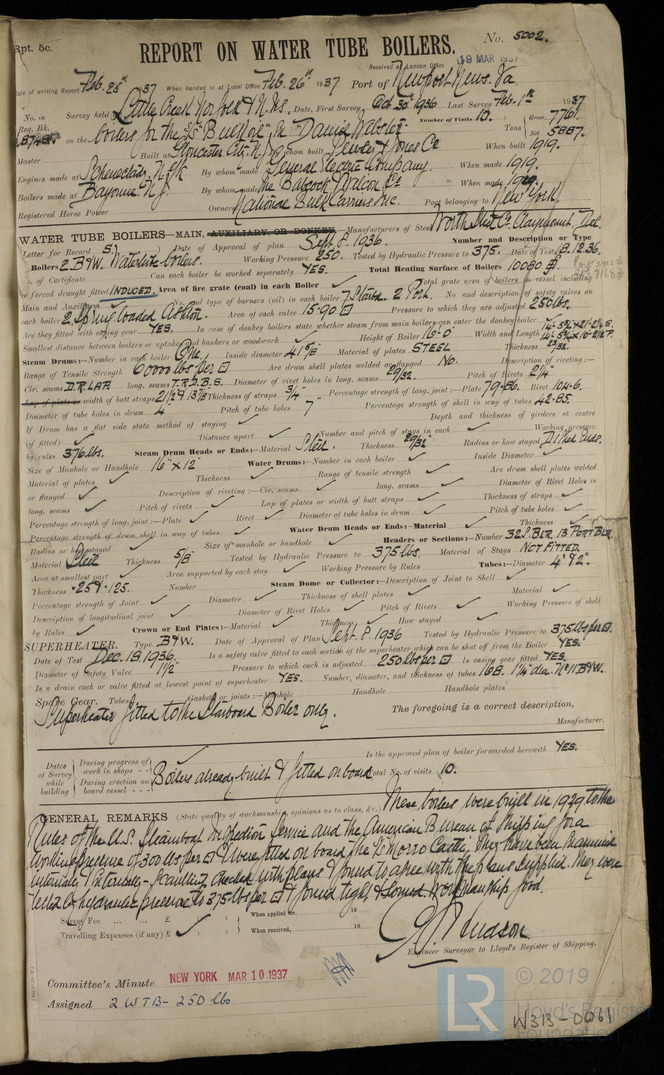 Rpt. 5c.
No. 5002.
REPORT ON WATER TUBE BOILERS.
Received at London Office 19 MAR 1937
Date of writing Report Feb. 25th 1937 When handed in at Local Office Feb. 26th 1937 Port of Newport News. Va
No. in Survey held Date, First Survey Oct 30th 1936 Last Survey Feb. 1st 1937
Reg. Bk. Number of Visits 10.
on the boilers for the Daniel Webster Tons Gross 7761 Net 5887.
Master Built at Gloucester City N.J. By whom built When built 1919.
Engines made at Schenectady N.Y. By whom made General Electric Company. When made 1919.
Boilers made at Bayonne N.J. By whom made The Babcock & Wilcox Co When made 1929.
Registered Horse Power Owners National Bulk Carriers Inc. Port belonging to New York.
WATER TUBE BOILERS—MAIN, AUXILIARY, OR DONKEY.—Manufacturers of Steel Worth Steel Co Claymont Del.
Letter for Record S Date of Approval of plan Sept. 8. 1936. Number and Description or Type
Boilers 2 B&W. Watertube boilers. Working Pressure 250. Tested by Hydraulic Pressure to 375. Date of Test 18.12.36.
No. of Certificate Can each boiler be worked separately YES. Total Heating Surface of Boilers 10080
Is forced draught fitted INDUCED. Area of fire grate (coal) in each Boiler Total grate area of boilers in vessel including
Main and Auxiliary No. and type of burners (oil) in each boiler 7 Starbd. 2 Port. No. and description of safety valves on
each boiler 2. Spring loaded Ashton. Area of each valve 15.90 Pressure to which they are adjusted 250 lbs.
Are they fitted with easing gear YES. In case of donkey boilers state whether steam from main boilers can enter the donkey boiler
Smallest distance between boilers or uptakes and bunkers or woodwork Height of Boiler 16'-0" Width and Length
Steam Drums:—Number in each boiler One. Inside diameter 41 5/8 Material of plates STEEL Thickness 23/32
Range of Tensile Strength 60000 lbs per Are drum shell plates welded or flanged No. Description of riveting:—
Cir. seams D.R. LAP. long. seams T.R.D.B.S. Diameter of rivet holes in long. seams 29/32. Pitch of Rivets 2 1/4
Lap of plates or width of butt straps 21 1/2 & 13 7/8 Thickness of straps 3/4 Percentage strength of long. joint:—Plate 79.86. Rivet 104.6.
Diameter of tube holes in drum 4 Pitch of tube holes 7" Percentage strength of shell in way of tubes 42.85.
If Drum has a flat side state method of staying Depth and thickness of girders at centre
(if fitted) Distance apart Number and pitch of stays in each Working pressure
by rules 376 lbs. Steam Drum Heads or Ends:—Material Steel. Thickness 29/32 Radius or how stayed Dished ends.
Size of Manhole or Handhole 16" x 12" Water Drums:—Number in each boiler Inside Diameter
Material of plates Thickness Range of tensile strength Are drum shell plates welded
or flanged Description of riveting:—Cir. seams long. seams Diameter of Rivet Holes in
long. seams Pitch of rivets Lap of plates or width of butt straps Thickness of straps
Percentage strength of long. joint:—Plate Rivet Diameter of tube holes in drum Pitch of tube holes
Percentage strength of drum shell in way of tubes Water Drum Heads or Ends:—Material Thickness
Radius or how stayed Size of manhole or handhole Headers or Sections:—Number 32 S. BLR. 13 PORT BLR.
Material Steel Thickness 5/8 Tested by Hydraulic Pressure to 375 lbs. Material of Stays NOT FITTED.
Area at smallest part Area supported by each stay Working Pressure by Rules Tubes:—Diameter 4" & 2".
Thickness .259. .125. Number Steam Dome or Collector:—Description of Joint to Shell
Percentage strength of Joint Diameter Thickness of shell plates Material
Description of longitudinal joint Diameter of Rivet Holes Pitch of Rivets Working Pressure of shell
by Rules Crown or End Plates:—Material Thickness How stayed
SUPERHEATER. Type B&W. Date of Approval of Plan Sept. 8. 1936 Tested by Hydraulic Pressure to 375 lbs per
Date of Test Dec. 18. 1936. Is a safety valve fitted to each section of the superheater which can be shut off from the Boiler YES.
Diameter of Safety Valve 1 1/2 Pressure to which each is adjusted 250 lbs per Is easing gear fitted YES.
Is a drain cock or valve fitted at lowest point of superheater YES. Number, diameter, and thickness of tubes 168. 1 1/4 dia. No 11 BWG.
Spare Gear. Tubes Gaskets or joints:—Manhole Handhole Handhole plates
Superheater fitted to the Starboard Boiler only.
The foregoing is a correct description,
Manufacturer.
Dates of Survey while building
During progress of work in shops - -
During erection on board vessel - - -
Boilers already built & fitted on board
Is the approved plan of boiler forwarded herewith YES.
Total No. of visits 10.
GENERAL REMARKS (State quality of workmanship, opinions as to class, &c.) These boilers were built in 1929 to the
Rules of the U.S. Steamboat Inspection Service and the American Bureau of Shipping for a
Working Pressure of 300 lbs per & were fitted on board the "Morro Castle", they have been examined
internally & externally - scantlings checked with plans & found to agree with the plans supplied. They were
tested by hydraulic pressure to 375 lbs per & found tight & sound. Workmanship good.
Survey Fee ... ... £ : : When applied for, 19
Travelling Expenses (if any) £ : : When received, 19
Engineer Surveyor to Lloyd's Register of Shipping.
Committee's Minute NEW YORK MAR 10 1937
Assigned 2 WTB - 250 lb
LR © 2019
Lloyd's Register
Foundation
W313-0061